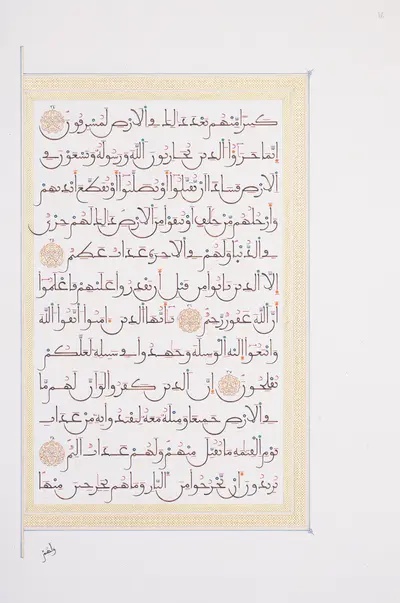 كثيرا منهم بعد ذلك في الارض لمسرفون
إنما جزاؤا الذين يحاربون الله ورسوله ويسعون في
الارض فسادا ان يقتلوا أو يصلبوا أو تقطع أيديهم
وأرجلهم من خلف أو ينفوا من الارض ذلك لهم خزي
في الدنيا ولهم في الاخرة عذاب عظيم
إلا الذين تابوا من قبل أن تقدروا عليهم فاعلموا
أن الله غفور رحيم يأيها الذين ءامنوا اتقوا الله
وابتغوا إليه الوسيلة وجهدوا في سبيله لعلكم
تفلحون إن الذين كفروا لو ان لهم ما
في الارض جميعا ومثله معه ليفتدوا به من عذاب
يوم القيمة ما تقبل منهم ولهم عذاب اليم
يريدون أن يخرجوا من النار وما هم بخرجين منها
ولهم